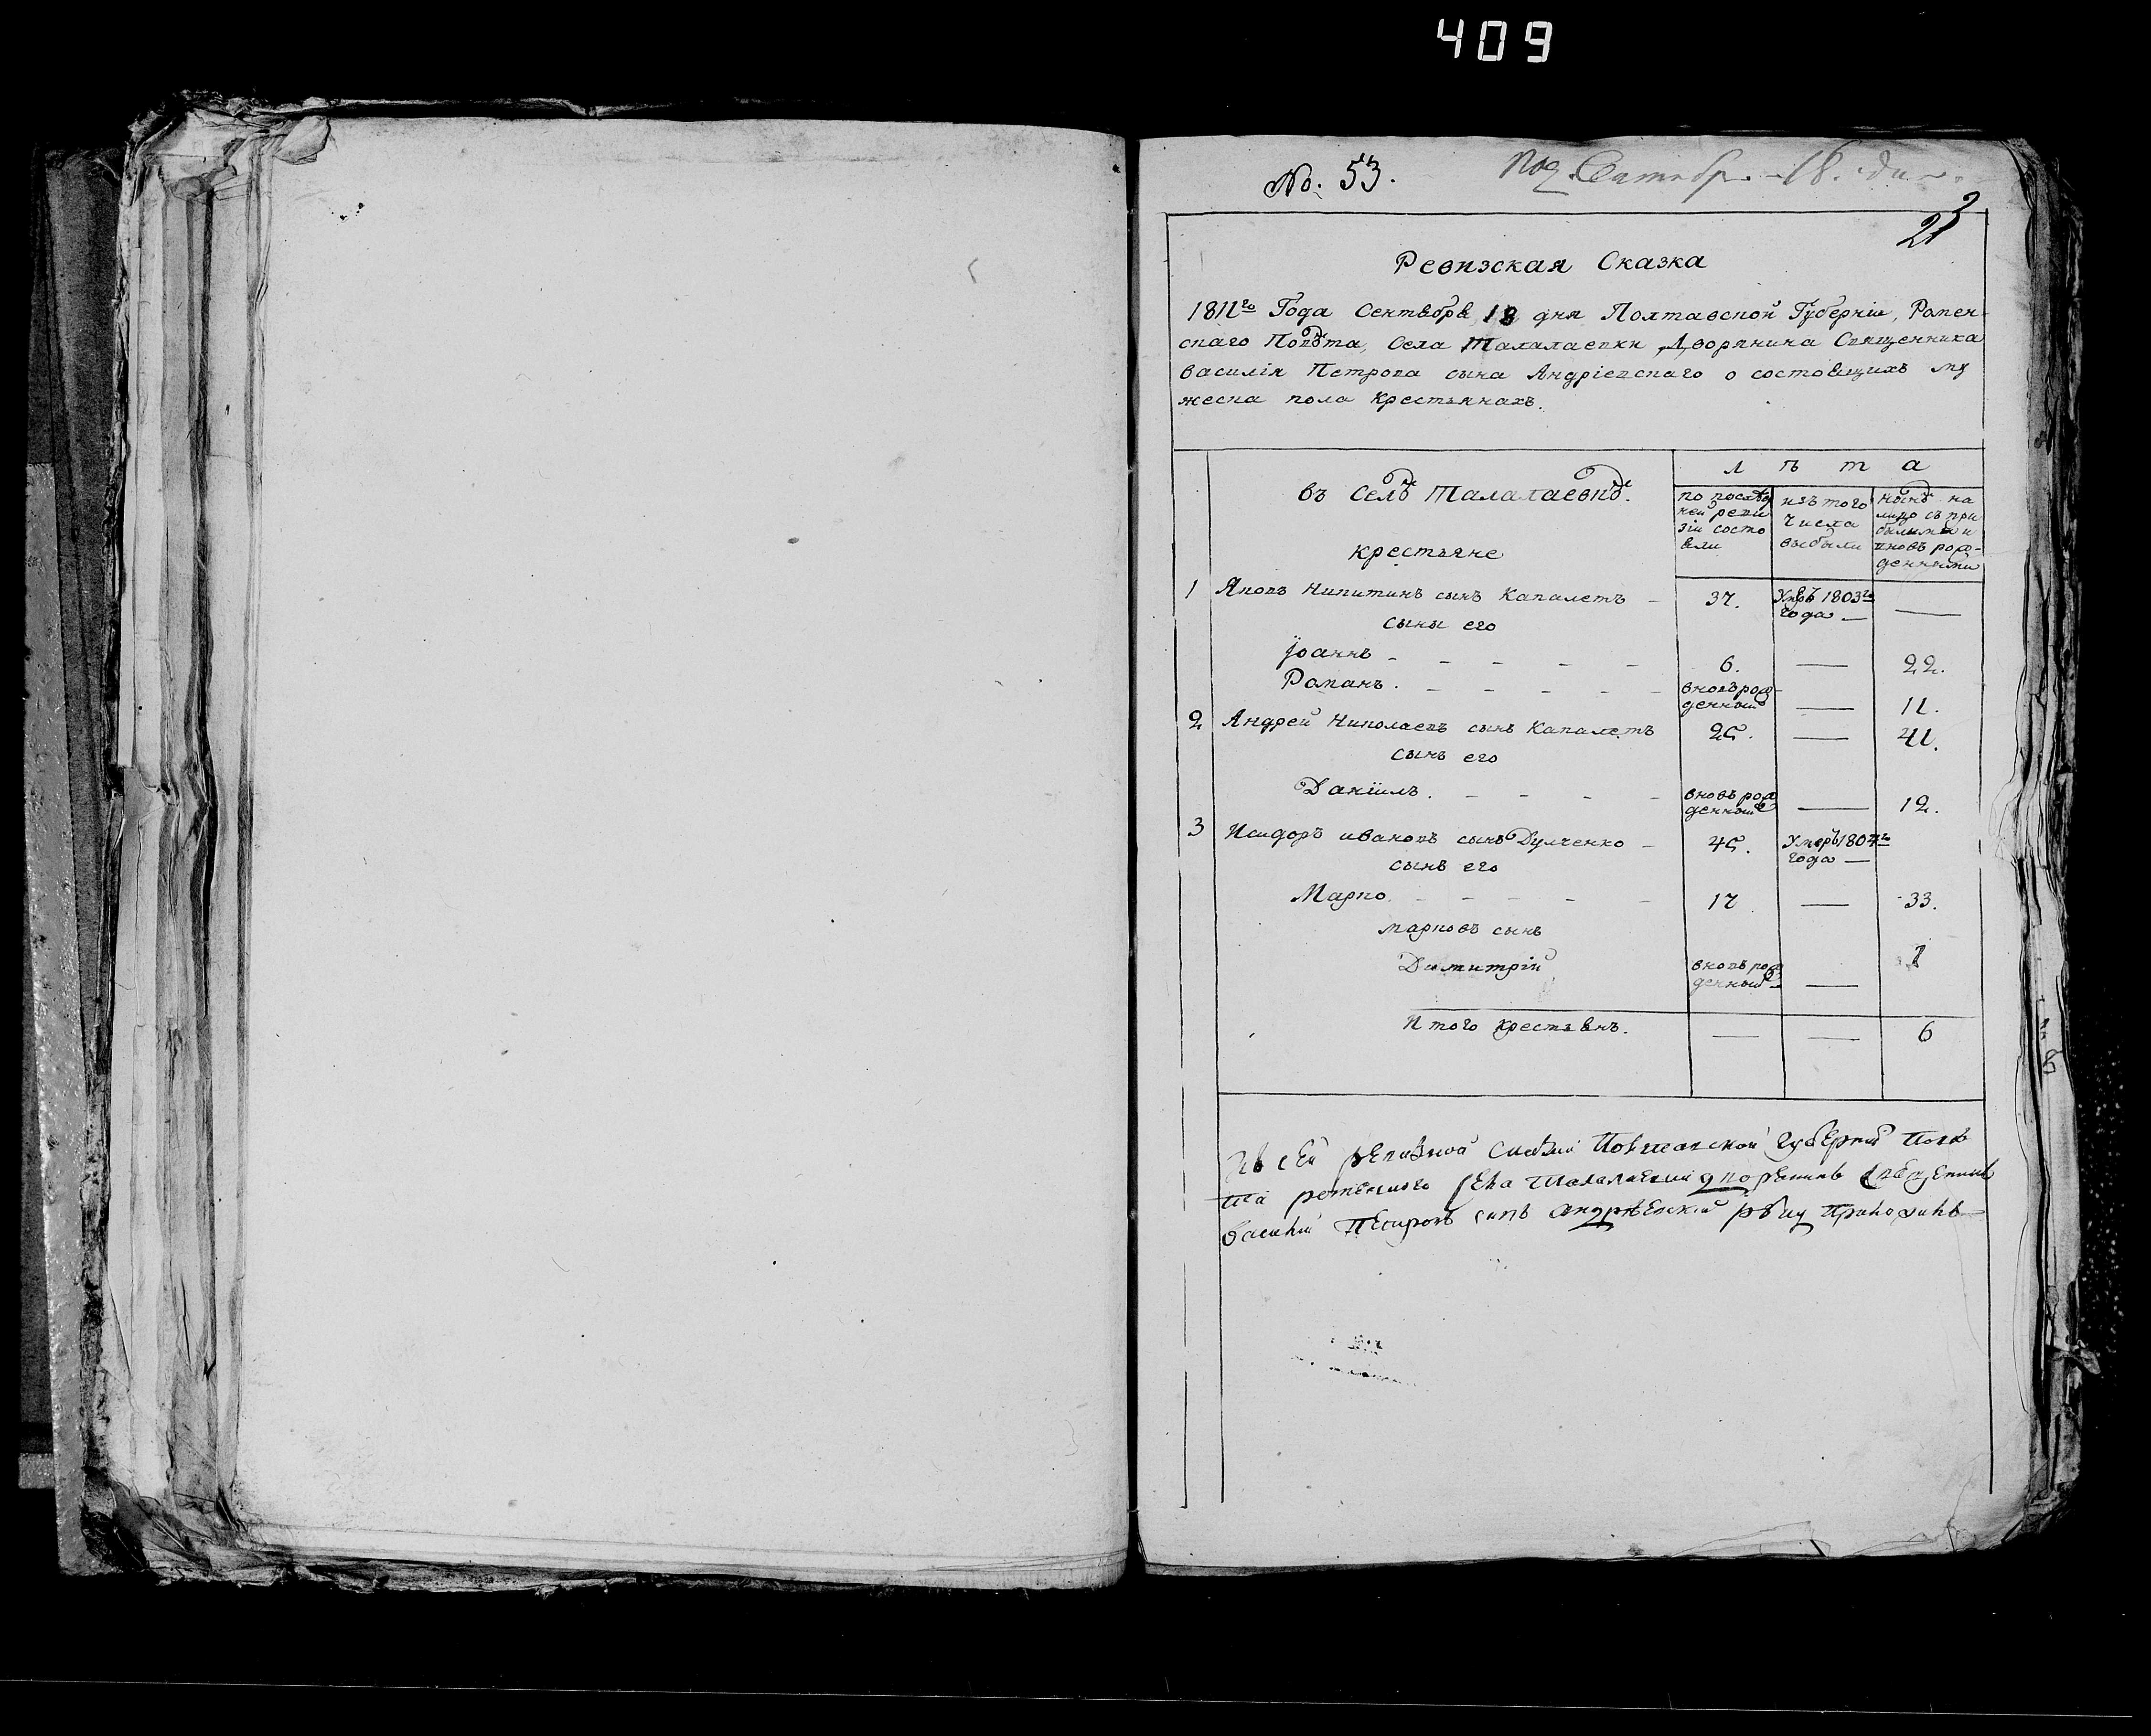 409
No. 53.
Под. Сентябр. 18. дн
23
Ревизская Сказка
1811го Года Сентября 18 дня Полтавской Губерніи, Ромен-
скаго Повѣта, Села Талалаевки Дворянина Священника
Василія Петрова сына Андріевскаго о состоящихъ му
жеска пола крестьянахъ.
Лѣта
въ Селѣ Талалаевкѣ.
крестьяне
по послѣд
ней реви
зіи состо
яли
изъ того
числа
выбыли
нынѣ на
лицо съ при
былыми и
вновь рож-
денными
1 Яковъ Никитинъ сынъ Капалетъ – 37. Умрѣ 1803го
года — —
сыны его
Іоаннъ - - - - - 6. — 22.
Романъ. - - - - - вновь рож-
денный — 11.
2 Андрей Николаевъ сынъ Капалетъ 25. — 41.
сынъ его
Даніилъ. - - - - вновь рож
денный — 12.
3 Исидоръ ивановъ сынъ Дулченко – 45. Умеръ 1807го
года —
сынъ его
Марко. - - - - - 17 — 33.
марковъ сынъ
Димитрій вновь рож
денный — 1
Итого крестьянъ. — — 6
Къ сей ревизкой сказки Полтавской губерній Повѣ
та роменского села талалаевки дворенинъ
василий Петровъ синъ андрѣевский руку приложилъ